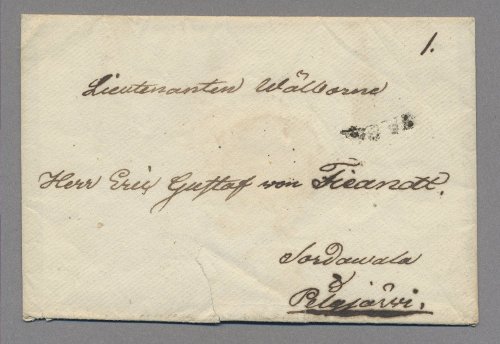 1.
Lieutenanten Wälborne
Herr Eric Gustaf von Fieandt.
Sordawala
&
Pelgjärvi.